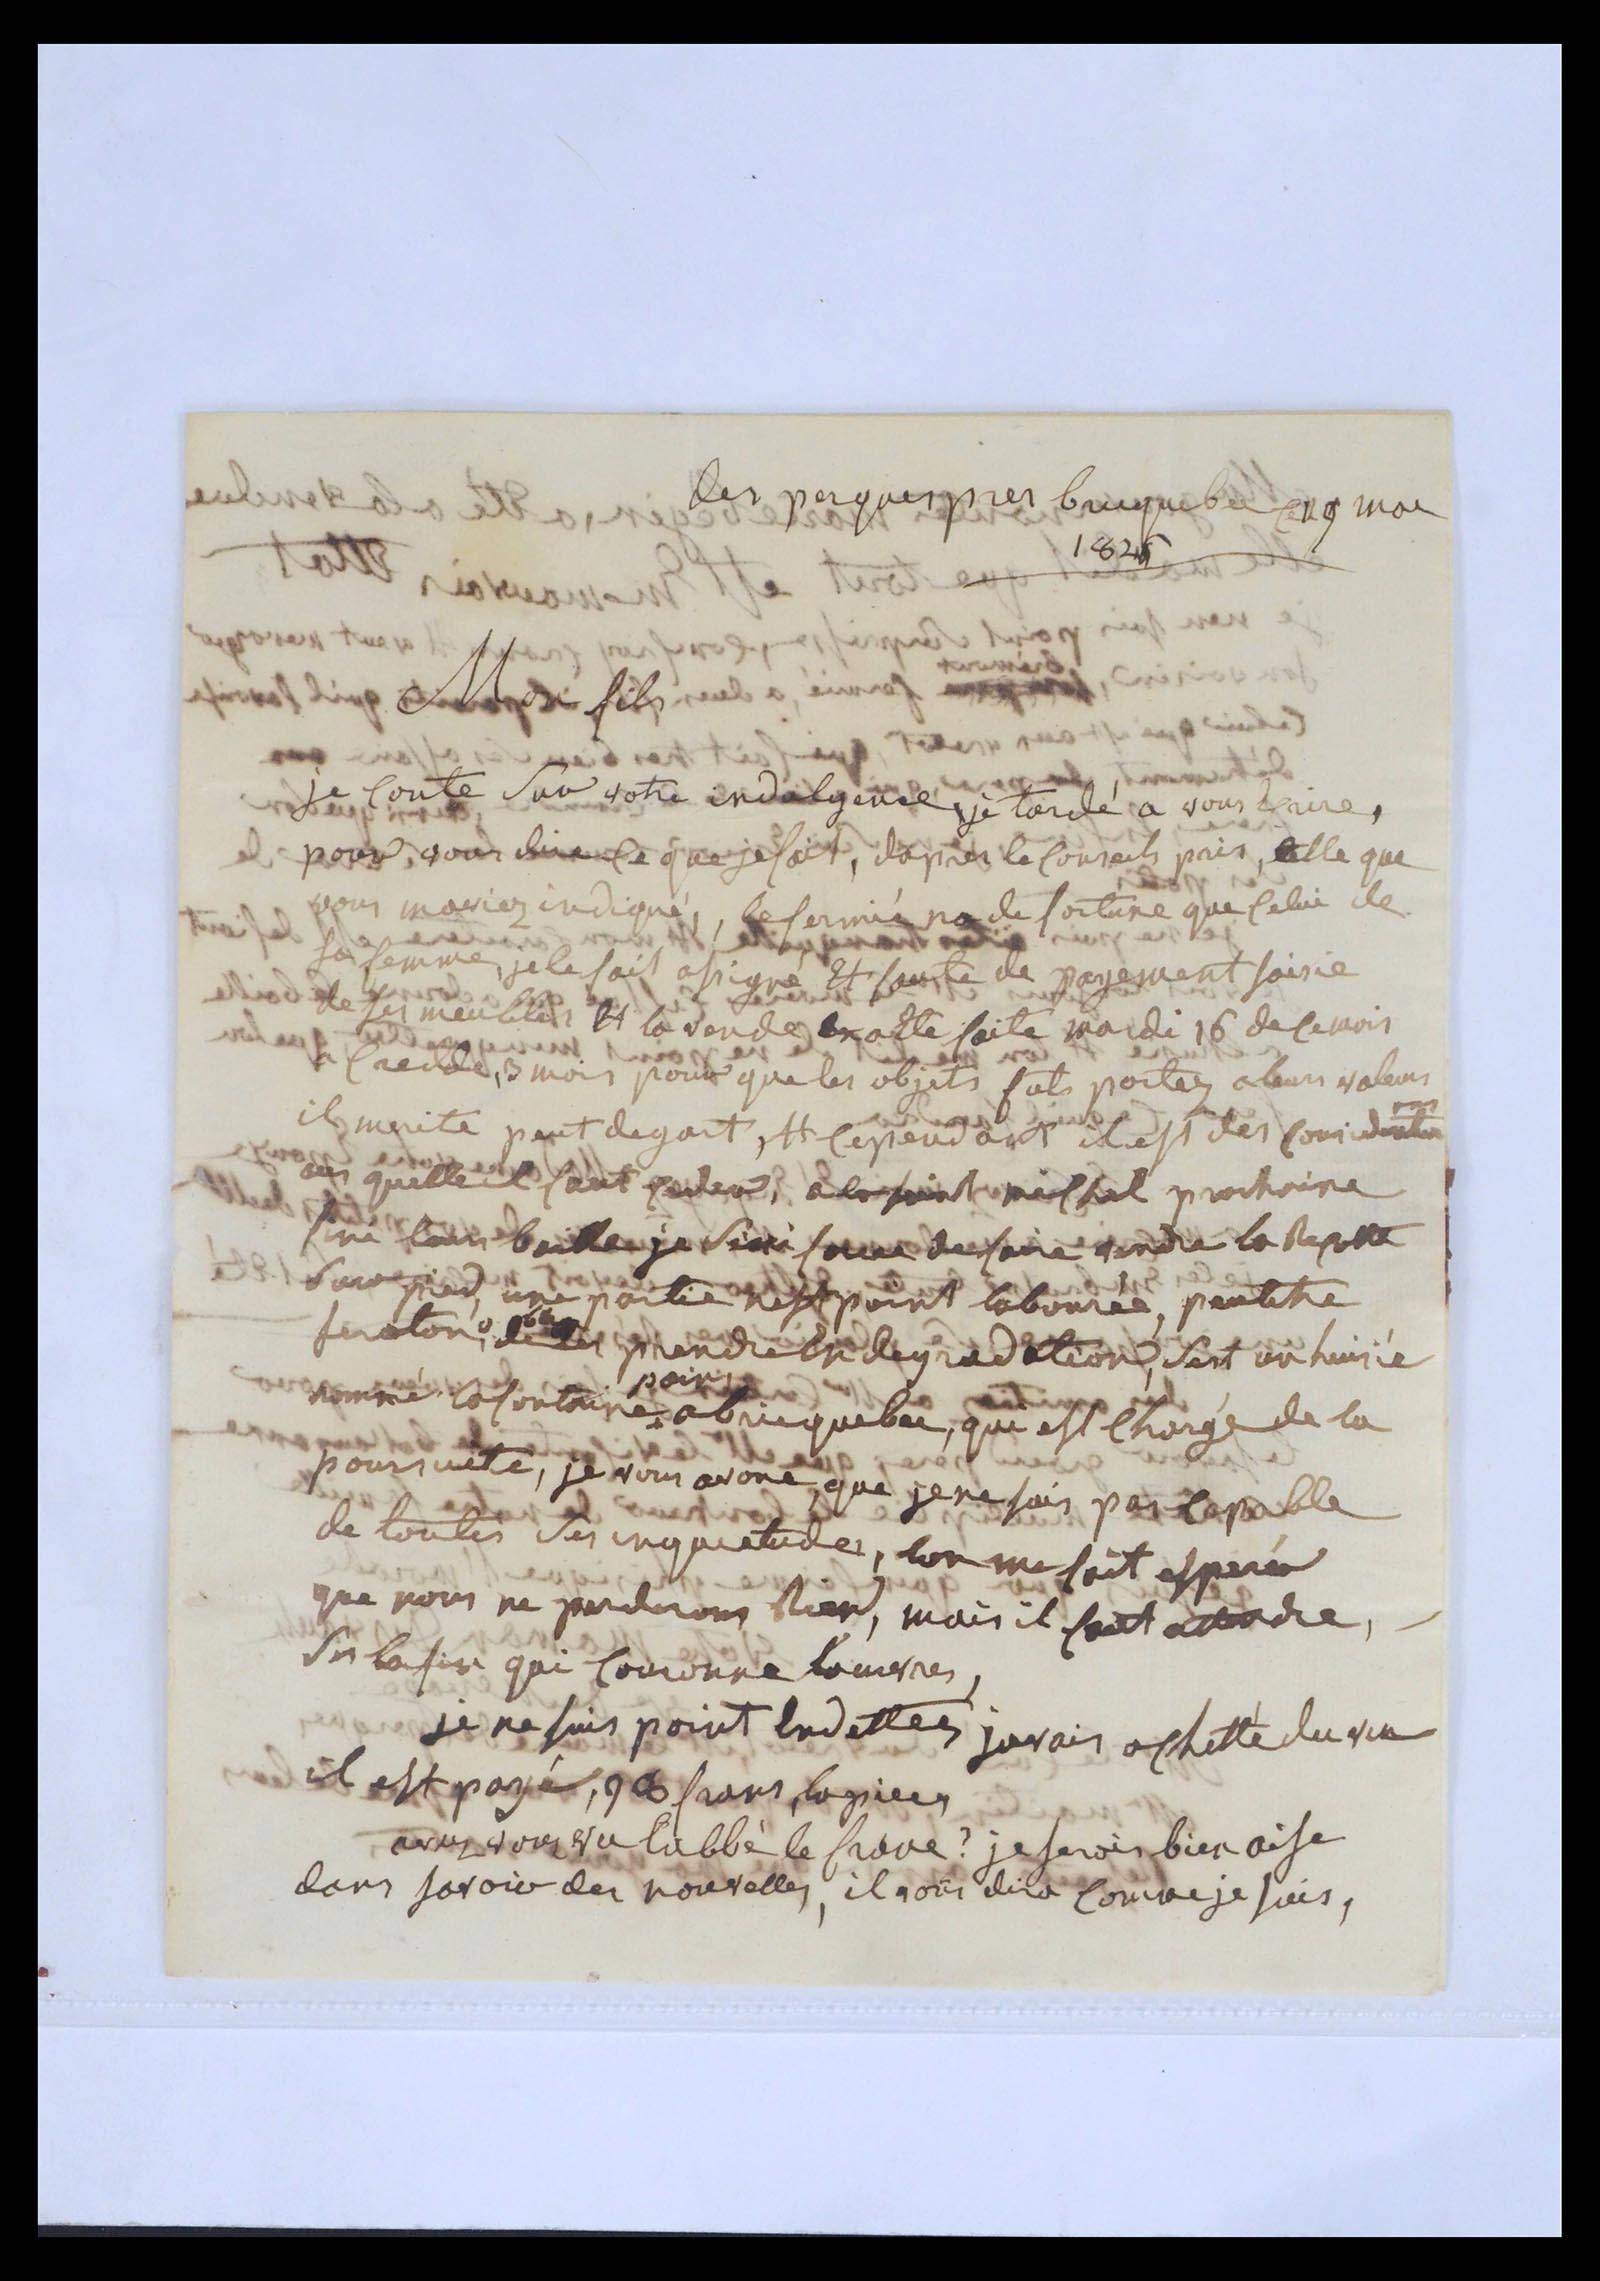 des perques pres bricquebec ce 19 mai
1826
Mon fils
je conte sur votre indulgence, je tardé a vous Ecrire,
pour, vous dire ce que je fait, dapres le conseils pris, telle que
vous maviez indiqué, le fermié na de fortune que celui de
sa femme, je le fait asigné Et faute de payement saisie
de ses meubles Et la vende a Ette faite mardi 16 de ce mois
a credde, 3 mois pour que les objets futs portez a leurs valeurs
il merite peut degart, Et cependant il est des considerations
aus quelle il faut ceder, a la saint michel prochaine
fini leurs baille je serai forcé de faire vendre la Recolte
sur pied, une partie nest point labourée, peutetre
feraton, prendre En degradation, sest un huisié
nommé lafontaine, abricquebec, qui est chargé de la
poursuite, je vous avoue, que je ne suis pas capable
de toutes ses inquietudes, lon me fait esperér
que nous ne perderons Rien, mais il faut attendre,
ses la fin qui couronne louevres,
je ne suis point Endettée, javais achetté du vin
il est payé, 98 frans, la piece,
avez vous vu labbé le frane? je serois bien aise
dans savoir des nouvelles, il vous dira comme je suis,